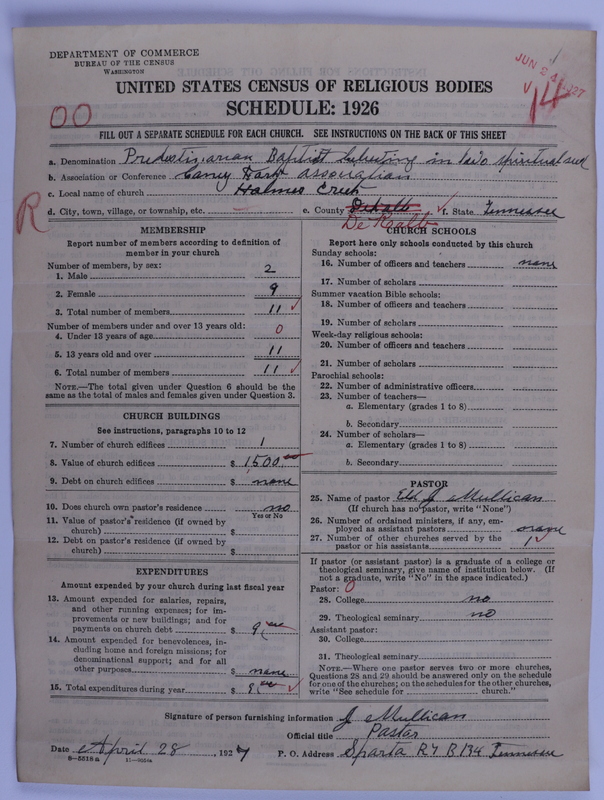 DEPARTMENT OF COMMERCE
BUREAU OF THE CENSUS
WASHINGTON
JUN 24 1927
UNITED STATES CENSUS OF RELIGIOUS BODIES
SCHEDULE: 1926
00
14
FILL OUT A SEPARATE SCHEDULE FOR EACH CHURCH. SEE INSTRUCTIONS ON THE BACK OF THIS SHEET
a. Denomination Predestinarian Baptist beleiving in two spiritual seed
b. Association or Conference Caney Fork association
c. Local name of church Holmes Creek
d. City, town, village, or township, etc. e. County Dekalb f. State Tennessee
R
De Kalb
MEMBERSHIP
Report number of members according to definition of member in your church
Number of members, by sex:
1. Male 2
2. Female 9
3. Total number of members 11
Number of members under and over 13 years old:
4. Under 13 years of age 0
5. 13 years old and over 11
6. Total number of members 11
NOTE.—The total given under Question 6 should be the same as the total of males and females given under Question 3.
CHURCH BUILDINGS
See instructions, paragraphs 10 to 12
7. Number of church edifices 1
8. Value of church edifices $ 1,500
9. Debt on church edifices $ none
10. Does church own pastor's residence no
Yes or No
11. Value of pastor's residence (if owned by church) $
12. Debt on pastor's residence (if owned by church) $
EXPENDITURES
Amount expended by your church during last fiscal year
13. Amount expended for salaries, repairs, and other running expenses; for improvements or new buildings; and for payments on church debt $ 9
14. Amount expended for benevolences, including home and foreign missions; for denominational support; and for all other purposes $ none
15. Total expenditures during year $ 9
CHURCH SCHOOLS
Report here only schools conducted by this church
Sunday schools:
16. Number of officers and teachers none
17. Number of scholars
Summer vacation Bible schools:
18. Number of officers and teachers
19. Number of scholars
Week-day religious schools:
20. Number of officers and teachers
21. Number of scholars
Parochial schools:
22. Number of administrative officers
23. Number of teachers—
a. Elementary (grades 1 to 8)
b. Secondary
24. Number of scholars—
a. Elementary (grades 1 to 8)
b. Secondary
PASTOR
25. Name of pastor Eld J Mullican
(If church has no pastor, write "None")
26. Number of ordained ministers, if any, employed as assistant pastors
27. Number of other churches served by the pastor or his assistants 1
If pastor (or assistant pastor) is a graduate of a college or theological seminary, give name of institution below. (If not a graduate, write "No" in the space indicated.)
Pastor: 0
28. College no
29. Theological seminary no
Assistant pastor:
30. College
31. Theological seminary
NOTE.—Where one pastor serves two or more churches, Questions 28 and 29 should be answered only on the schedule for one of the churches; on the schedules for the other churches, write "See schedule for church."
Signature of person furnishing information J Mullican
Official title Pastor
Date April 28, 1927 P. O. Address Sparta R7 B 134 Tennessee
8—5516a